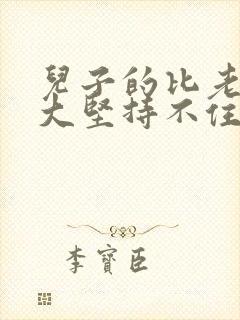 兒子的比老
大堅持不住
李寶臣